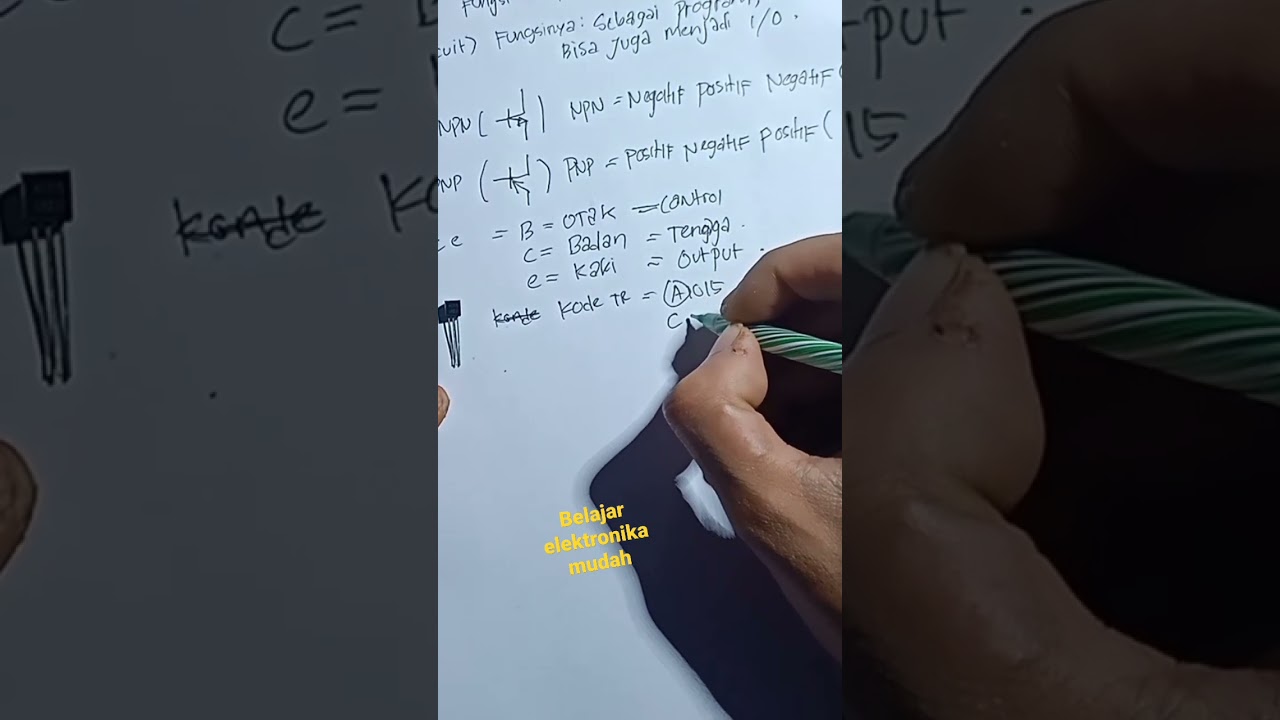 Fungsi
cuit) Fungsinya: Sebagai Program,
Bisa Juga menjadi I/O.
NPN ( ) NPN = Negatif positif Negatif (
PNP ( ) PNP = positif Negatif positif (
= B = otak = Control
C = Badan = Tengga.
e = Kaki = output.
Kode TR = (A)1015
C
Belajar
elektronika
mudah